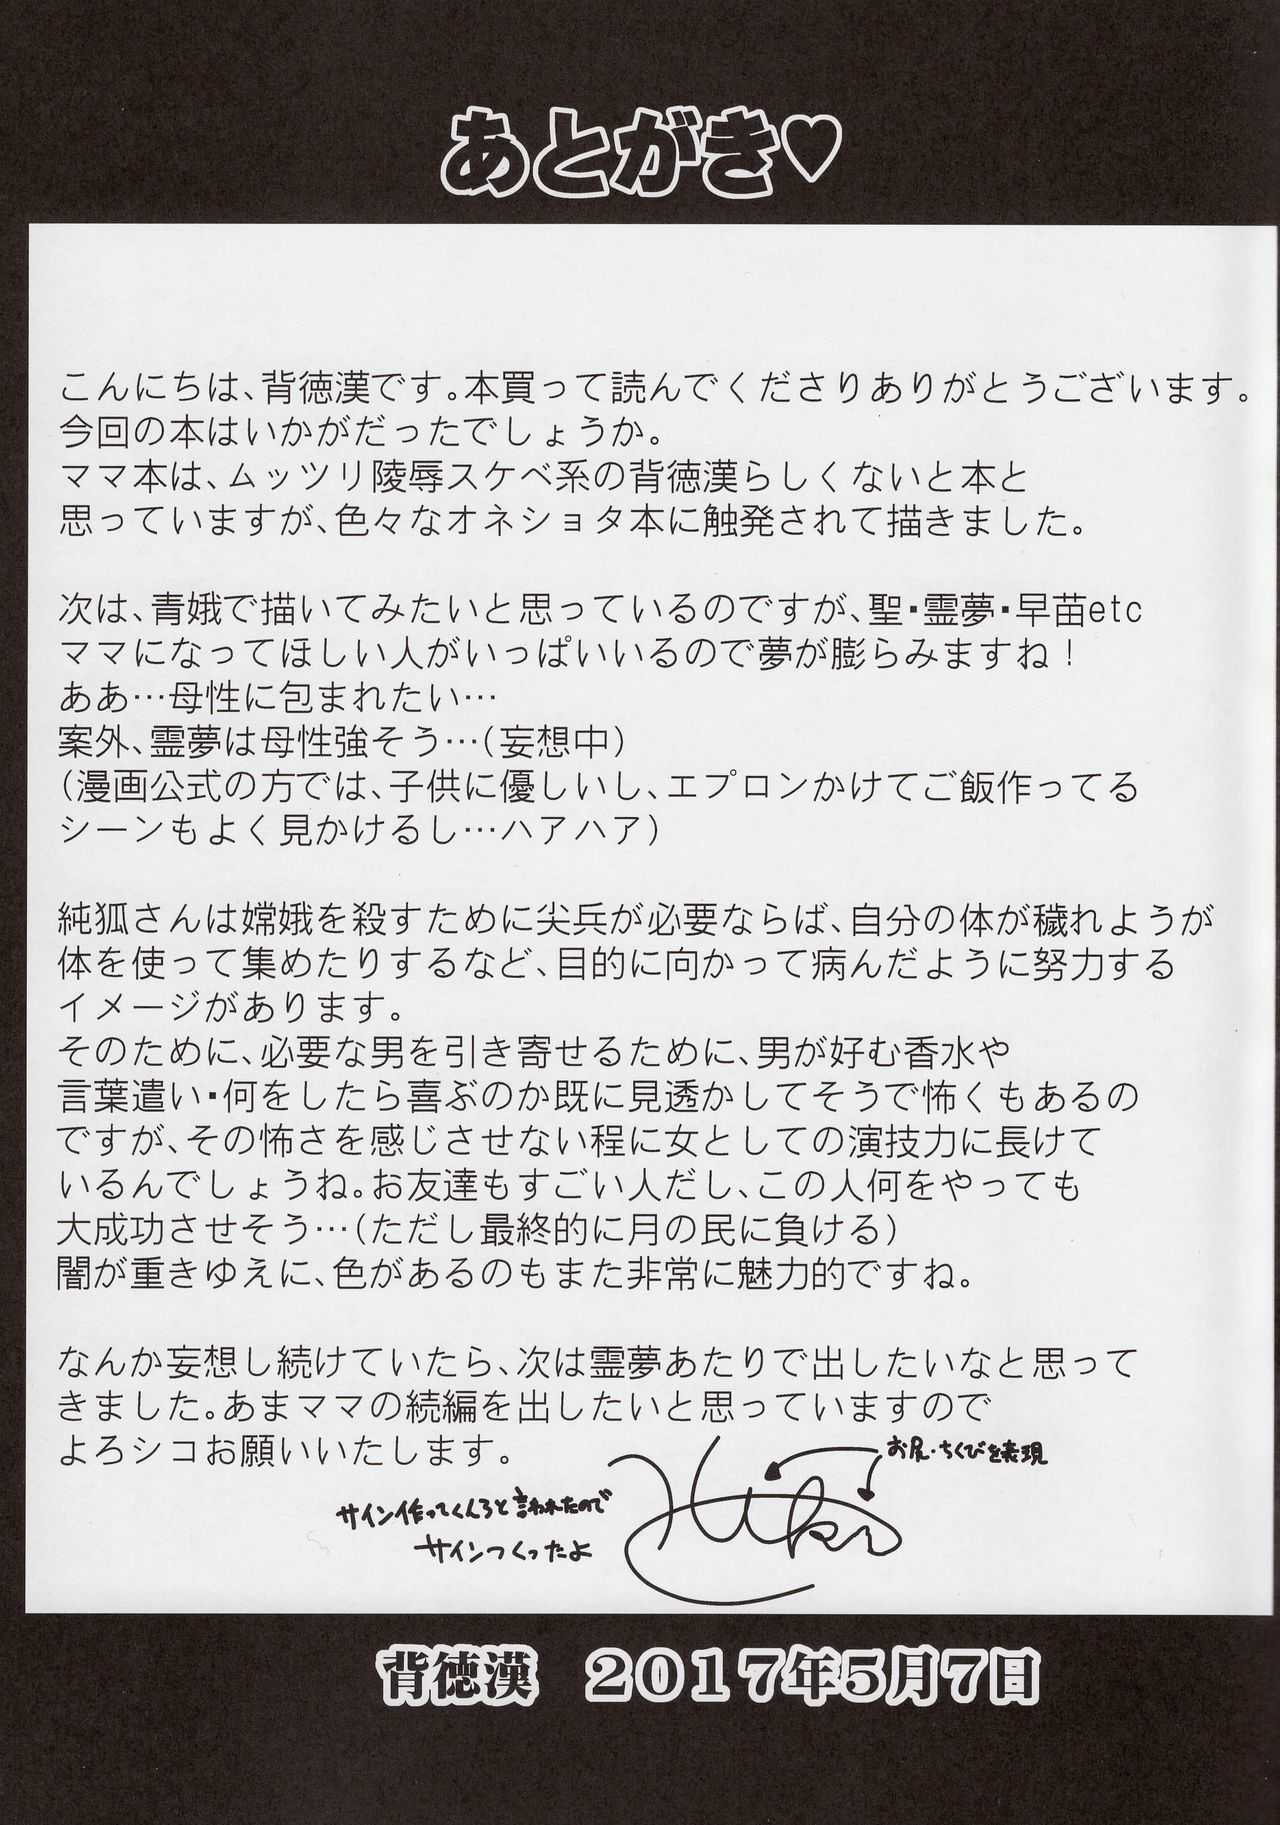 あとがき♡
こんにちは、背徳漢です。本買って読んでくださりありがとうございます。
今回の本はいかがだったでしょうか。
ママ本は、ムッツリ陵辱スケベ系の背徳漢らしくないと本と
思っていますが、色々なオネショタ本に触発されて描きました。
次は、青娥で描いてみたいと思っているのですが、聖・霊夢・早苗etc
ママになってほしい人がいっぱいいるので夢が膨らみますね！
ああ…母性に包まれたい…
案外、霊夢は母性強そう…（妄想中）
（漫画公式の方では、子供に優しいし、エプロンかけてご飯作ってる
シーンもよく見かけるし…ハアハア）
純狐さんは嫦娥を殺すために尖兵が必要ならば、自分の体が穢れようが
体を使って集めたりするなど、目的に向かって病んだように努力する
イメージがあります。
そのために、必要な男を引き寄せるために、男が好む香水や
言葉遣い・何をしたら喜ぶのか既に見透かしてそうで怖くもあるの
ですが、その怖さを感じさせない程に女としての演技力に長けて
いるんでしょうね。お友達もすごい人だし、この人何をやっても
大成功させそう…（ただし最終的に月の民に負ける）
闇が重きゆえに、色があるのもまた非常に魅力的ですね。
なんか妄想し続けていたら、次は霊夢あたりで出したいなと思って
きました。あまママの続編を出したいと思っていますので
よろシコお願いいたします。
お尻・ちくびを表現
サイン作ってくんろと言われたので
サインつくったよ
背徳漢　２０１７年５月７日